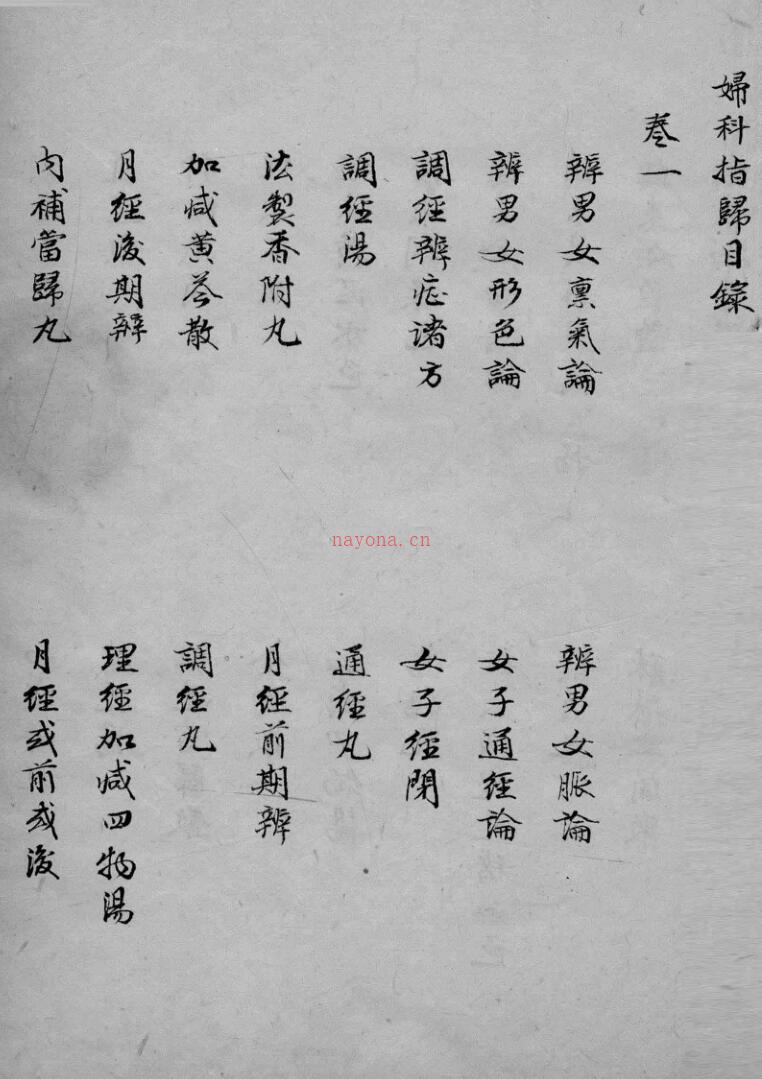 婦科指歸目錄
卷一
辨男女禀氣論
辨男女脈論
辨男女形色論
女子通經論
調經辨症诸方
女子經閉
調經湯
通經丸
法製香附丸
月經前期辨
加减黄芩散
調經丸
月經後期辨
理經加减四物湯
内補當歸丸
月經或前或後
nayona.cn